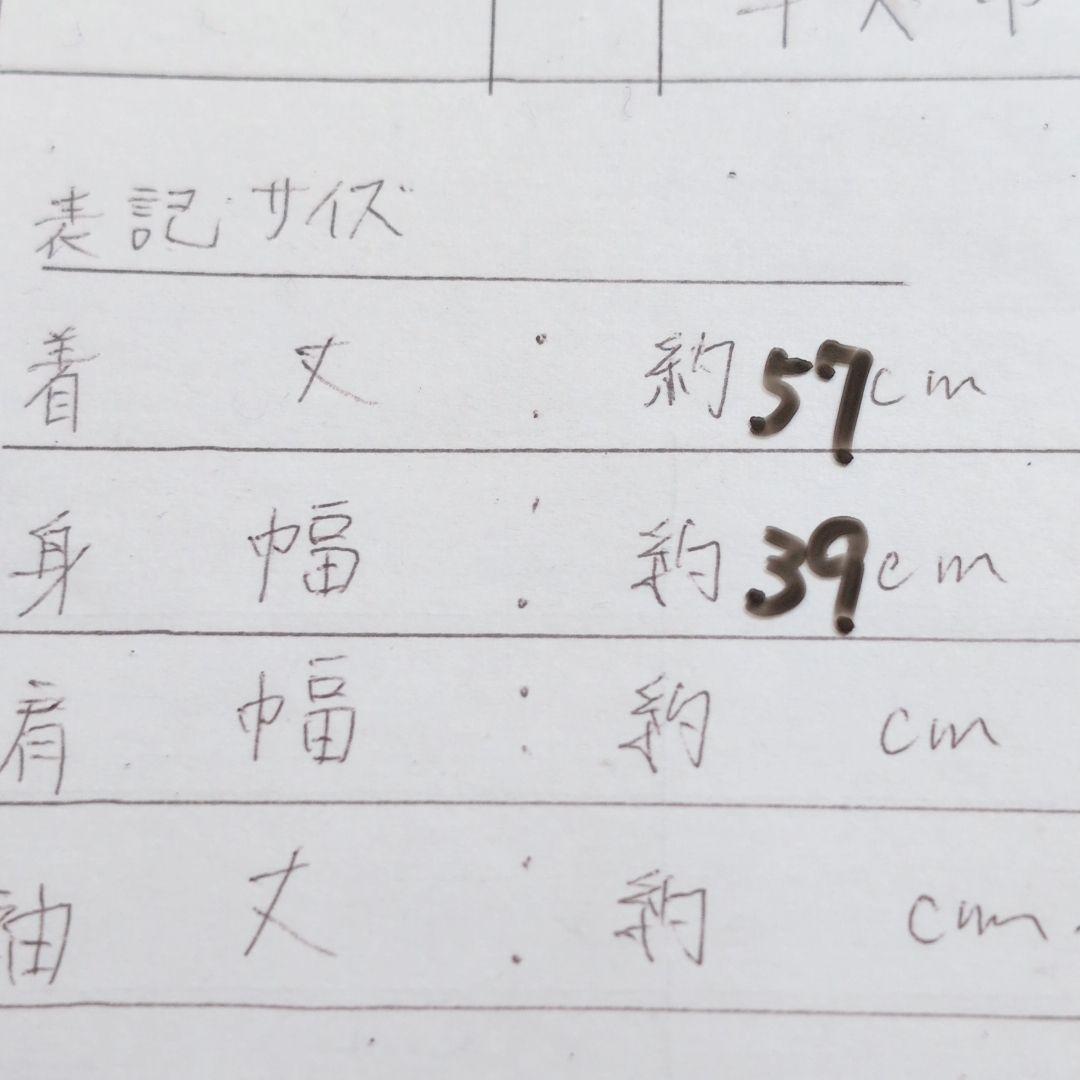 表記サイズ
着丈:約57cm
身幅:約39cm
肩幅:約 cm
袖丈:約 cm